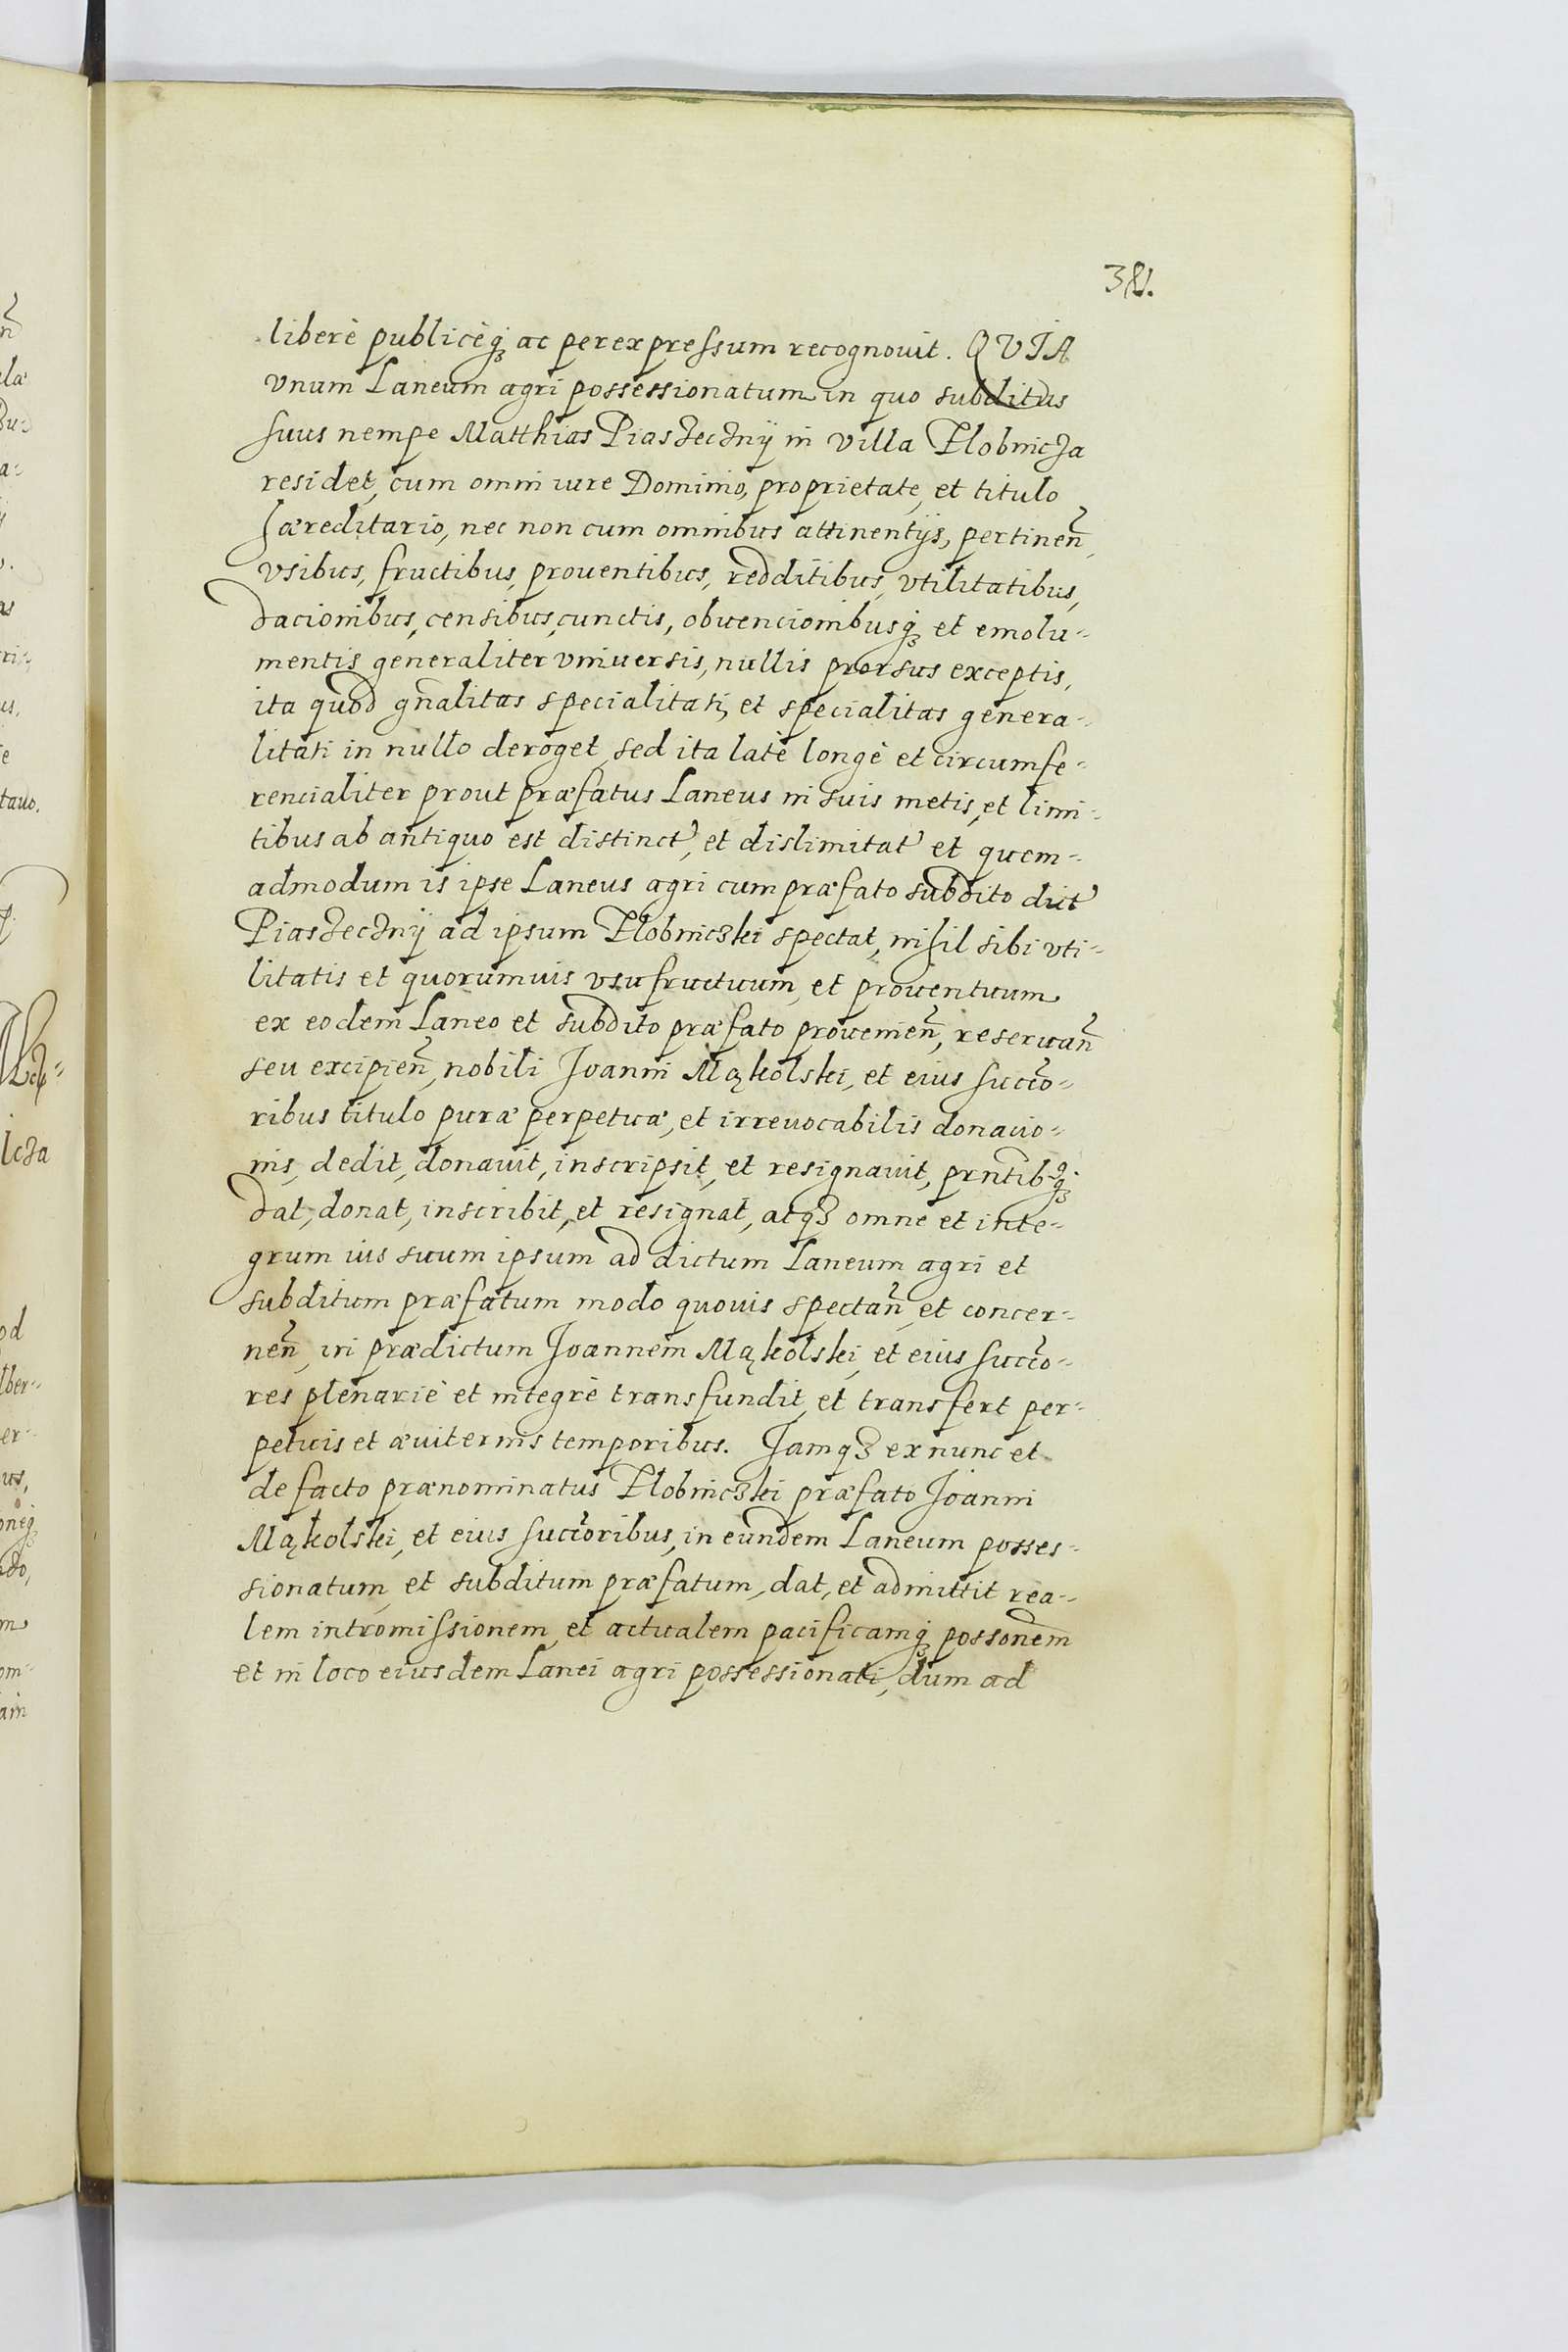 381.
liberè publicèq; ac per expressum recognouit. QVIA
vnum Laneum agri possessionatum in quo subditus
suus nempe Matthias Piaszeczny in villa Złobnicza
residet, cum omni iure Dominio, proprietate, et titulo
hæreditario, nec non cum omnibus attinentijs, pertinen̄,
vsibus, fructibus, prouentibus, redditibus, vtilitatibus,
dacionibus, censibus, cunctis, obuencionibusq; et emolu-
mentis generaliter vniuersis, nullis prorsus exceptis,
ita quod gn̄alitas specialitati, et specialitas genera-
litati in nullo deroget, sed ita latè longè et circumfe-
rencialiter prout præfatus Laneus in suis metis, et limi-
tibus ab antiquo est distinct', et dislimitat' et quem-
admodum is ipse Laneus agri cum præfato subdito dict'
Piaszeczny ad ipsum Złobniczki spectat, nihil sibi vti-
litatis et quorumuis vsufructuum, et prouentuum
ex eodem Laneo et subdito præfato prouenien̄, reseruan̄
seu excipien̄, nobili Joanni Mąkolski, et eius succō-
ribus titulo puræ perpetuæ, et irreuocabilis donacio-
nis, dedit, donauit, inscripsit, et resignauit, prn̄tibq;
dat, donat, inscribit, et resignat, atq; omne et inte-
grum ius suum ipsum ad dictum Laneum agri et
subditum præfatum modo quouis spectan̄, et concer-
nen̄, in prædictum Joannem Mąkolski, et eius succō-
res plenariè et integrè transfundit, et transfert per-
petuis et æuiternis temporibus. Jamq; ex nunc et
de facto prænominatus Złobniczki præfato Joanni
Mąkolski, et eius succōribus, in eundem Laneum posses-
sionatum, et subditum præfatum, dat, et admittit rea-
lem intromissionem, et actualem pacificamq; possōnem
et in loco eiusdem Lanei agri possessionati, dum ad